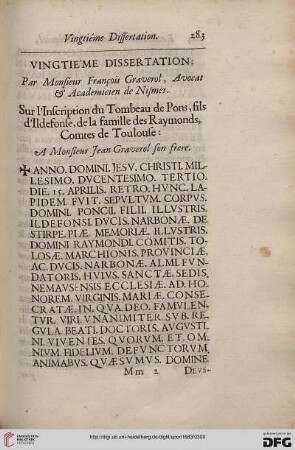 Vingtiéme Dissertation. 283
VINGTIE'ME DISSERTATION:
Par Monsieur François Graverol, Avocat
& Academicien de Nismes.
Sur l'Inscription du Tombeau de Pons, fils
d'Ildefonse, de la famille des Raymonds,
Comtes de Toulouse:
A Monsieur Jean Graverol son frere.
✠ ANNO. DOMINI. JESV. CHRISTI. MIL-
LESIMO. DVCENTESIMO. TERTIO.
DIE. 15. APRILIS. RETRO. HVNC. LA-
PIDEM. FVIT. SEPVLTVM. CORPVS.
DOMINI. PONCII. FILII. ILLVSTRIS.
ILDEFONSI. DVCIS. NARBONÆ. DE
STIRPE. PIÆ MEMORIÆ. ILLVSTRIS.
DOMINI. RAYMONDI. COMITIS. TO-
LOSÆ. MARCHIONIS. PROVINCIÆ.
AC. DVCIS. NARBONÆ. ALMI FVN-
DATORIS. HVIVS. SANCTÆ. SEDIS.
NEMAVSENSIS ECCLESIÆ. AD. HO-
NOREM. VIRGINIS. MARIÆ. CONSE-
CRATÆ. IN. QVA. DEO. FAMVLEN-
TVR. VIRI. VNANIMITER. SVB. RE-
GVLA. BEATI. DOCTORIS. AVGVSTI.
NI. VIVENTES. QVORVM. ET. OM-
NIVM FIDELIVM. DEFVNCTORVM.
ANIMABVS. QVÆSVMVS. DOMINE
Mm 2 DEVS-
UNIVERSITÄTS-
BIBLIOTHEK
HEIDELBERG
Gefördert durch
DFG